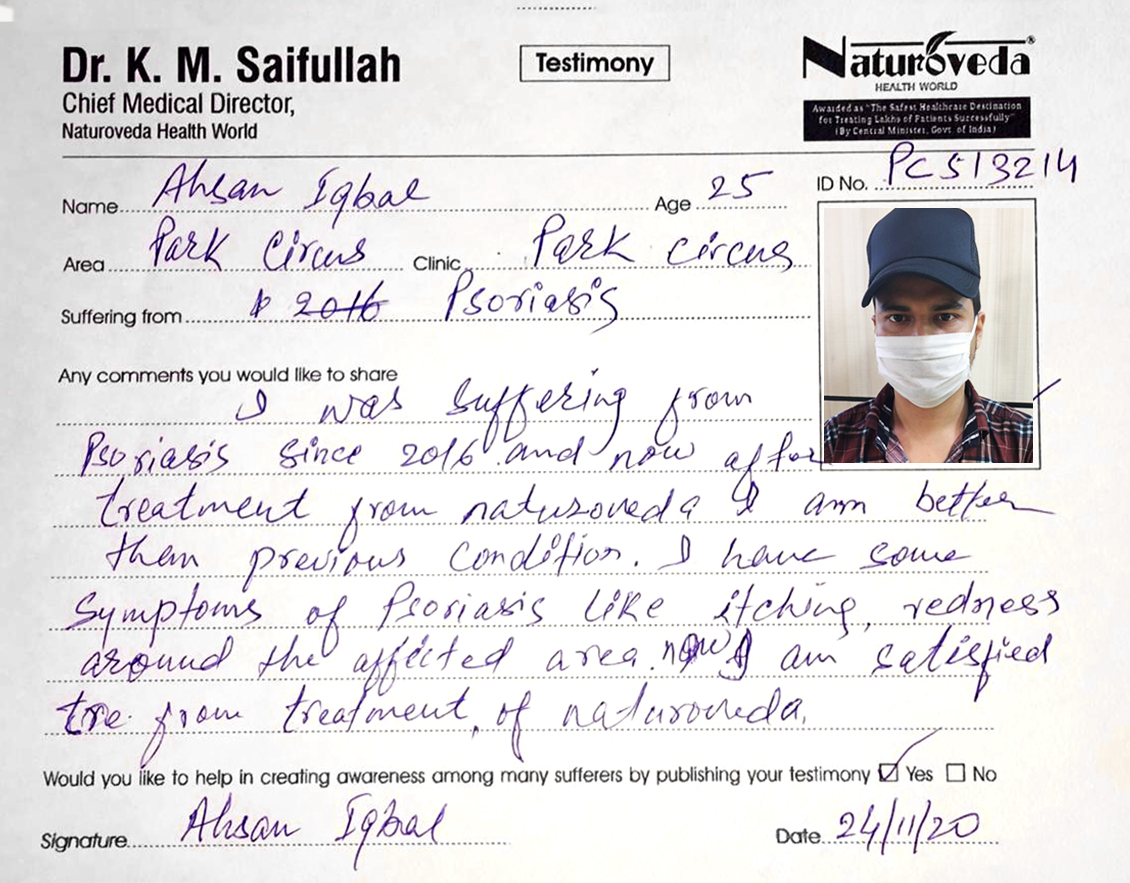 Dr. K. M. Saifullah
Chief Medical Director,
Naturoveda Health World
Testimony
Naturoveda®
HEALTH WORLD
Awarded as "The Safest Healthcare Destination
for Treating Lakhs of Patients Successfully"
(By Central Minister, Govt. of India)
Name Ahsan Iqbal Age 25
ID No. PC513214
Area Park Circus Clinic Park Circus
Suffering from 2016 Psoriasis
Any comments you would like to share
I was suffering from
Psoriasis since 2016 and now after
treatment from naturoveda I am better
then previous condition. I have some
symptoms of Psoriasis like itching, redness
around the affected area. now I am satisfied
tre from treatment of naturoveda.
Would you like to help in creating awareness among many sufferers by publishing your testimony Yes No
Signature Ahsan Iqbal Date 24/11/20